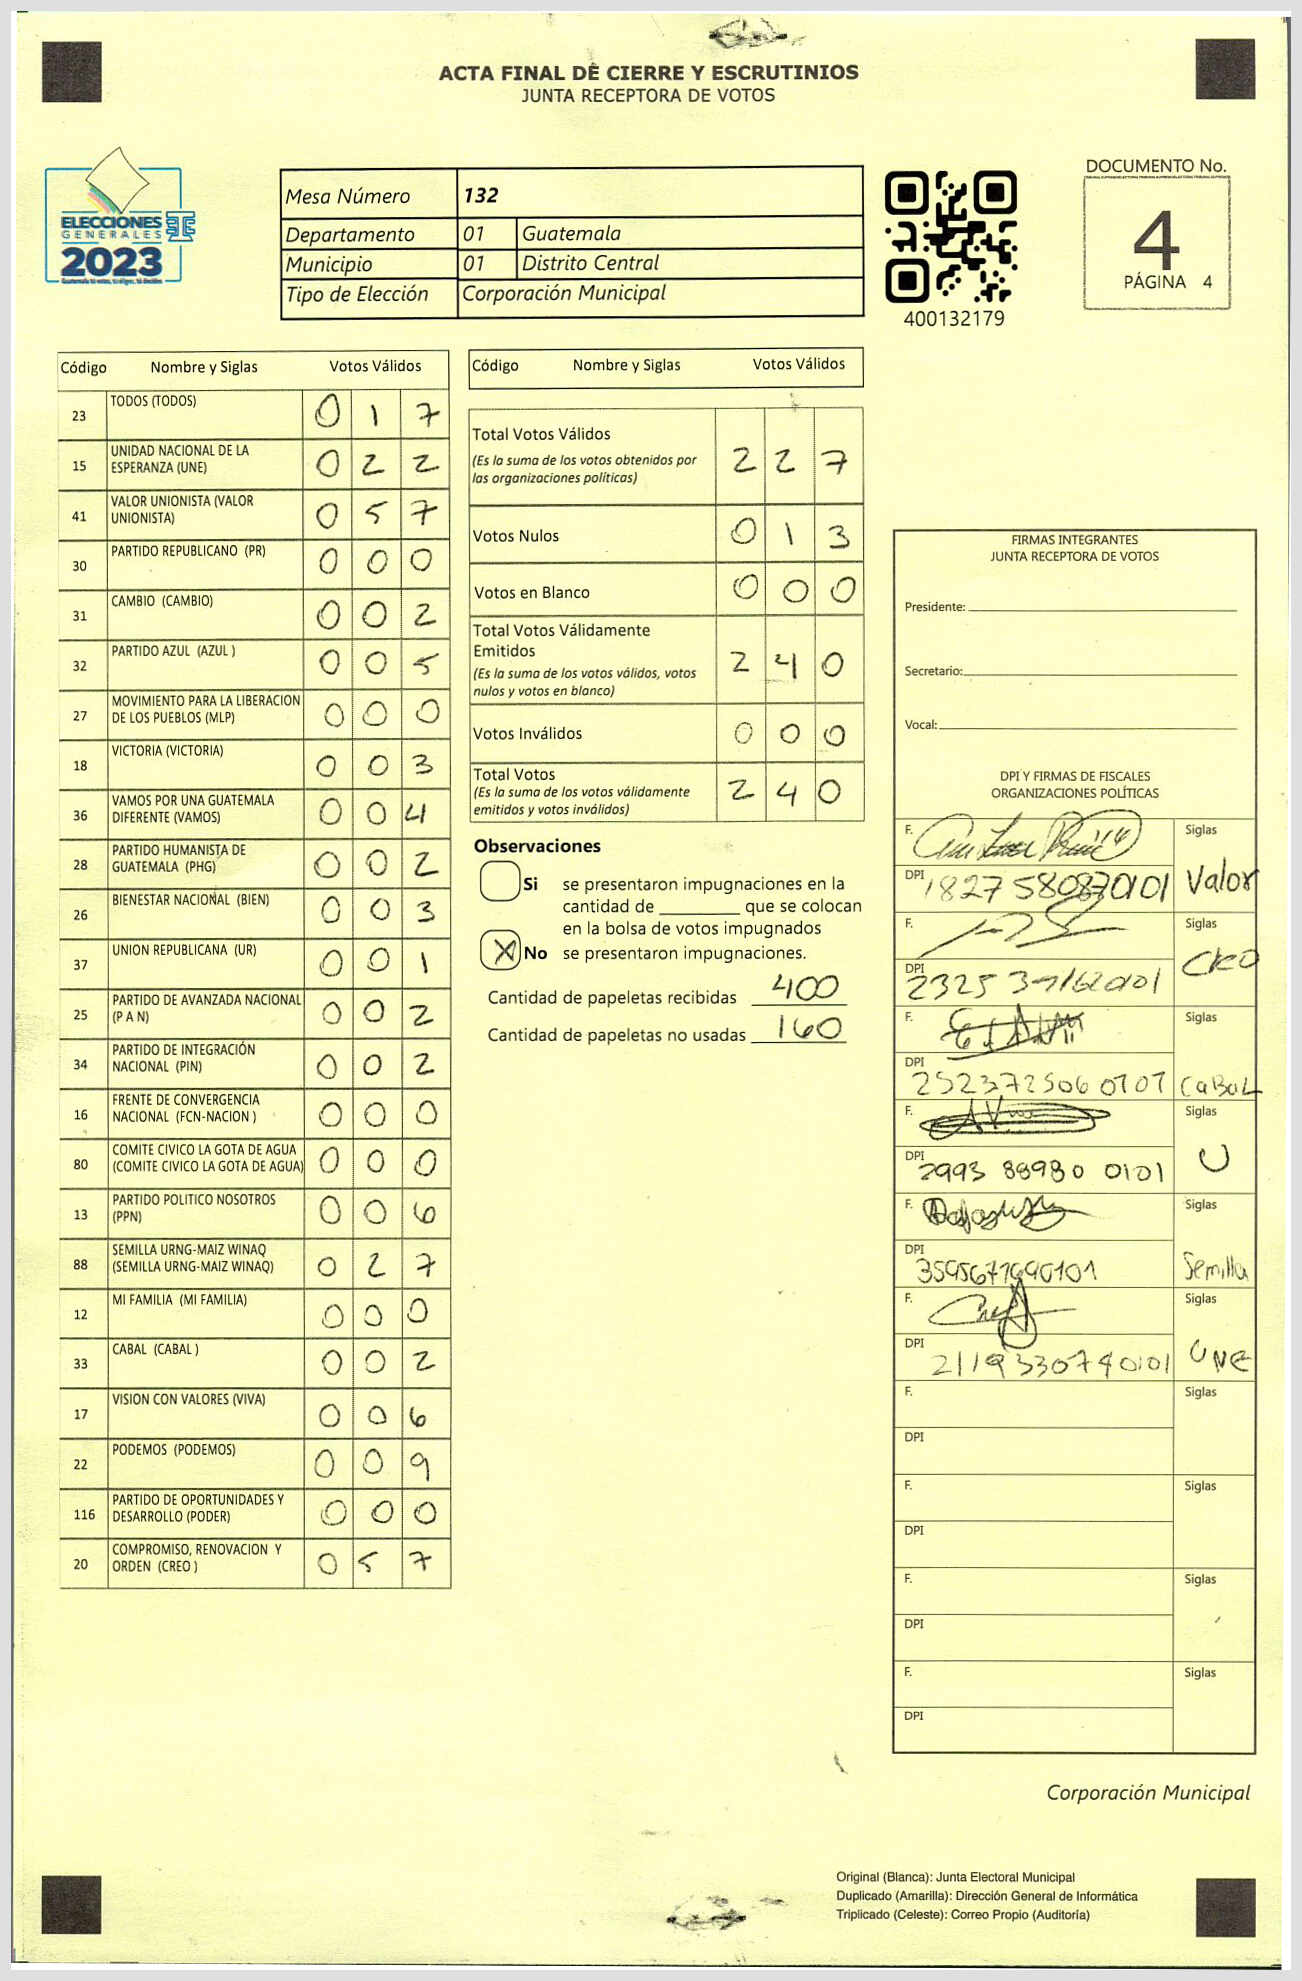 ACTA FINAL DE CIERRE Y ESCRUTINIOS
JUNTA RECEPTORA DE VOTOS
ELECCIONES
GENERALES
2023
Mesa Número 132
Departamento 01 Guatemala
Municipio 01 Distrito Central
Tipo de Elección Corporación Municipal
400132179
DOCUMENTO No.
4
PÁGINA 4
Código Nombre y Siglas Votos Válidos
23 TODOS (TODOS) 0 1 7
15 UNIDAD NACIONAL DE LA
ESPERANZA (UNE) 0 2 2
41 VALOR UNIONISTA (VALOR
UNIONISTA) 0 5 7
30 PARTIDO REPUBLICANO (PR) 0 0 0
31 CAMBIO (CAMBIO) 0 0 2
32 PARTIDO AZUL (AZUL ) 0 0 5
27 MOVIMIENTO PARA LA LIBERACION
DE LOS PUEBLOS (MLP) 0 0 0
18 VICTORIA (VICTORIA) 0 0 3
36 VAMOS POR UNA GUATEMALA
DIFERENTE (VAMOS) 0 0 4
28 PARTIDO HUMANISTA DE
GUATEMALA (PHG) 0 0 2
26 BIENESTAR NACIONAL (BIEN) 0 0 3
37 UNION REPUBLICANA (UR) 0 0 1
25 PARTIDO DE AVANZADA NACIONAL
(P A N) 0 0 2
34 PARTIDO DE INTEGRACIÓN
NACIONAL (PIN) 0 0 2
16 FRENTE DE CONVERGENCIA
NACIONAL (FCN-NACION ) 0 0 0
80 COMITE CIVICO LA GOTA DE AGUA
(COMITE CIVICO LA GOTA DE AGUA) 0 0 0
13 PARTIDO POLITICO NOSOTROS
(PPN) 0 0 6
88 SEMILLA URNG-MAIZ WINAQ
(SEMILLA URNG-MAIZ WINAQ) 0 2 7
12 MI FAMILIA (MI FAMILIA) 0 0 0
33 CABAL (CABAL ) 0 0 2
17 VISION CON VALORES (VIVA) 0 0 6
22 PODEMOS (PODEMOS) 0 0 9
116 PARTIDO DE OPORTUNIDADES Y
DESARROLLO (PODER) 0 0 0
20 COMPROMISO, RENOVACION Y
ORDEN (CREO ) 0 5 7
Código Nombre y Siglas Votos Válidos
Total Votos Válidos 2 2 7
(Es la suma de los votos obtenidos por
las organizaciones políticas)
Votos Nulos 0 1 3
Votos en Blanco 0 0 0
Total Votos Válidamente
Emitidos 2 4 0
(Es la suma de los votos válidos, votos
nulos y votos en blanco)
Votos Inválidos 0 0 0
Total Votos 2 4 0
(Es la suma de los votos válidamente
emitidos y votos inválidos)
Observaciones
Si se presentaron impugnaciones en la
cantidad de ________ que se colocan
en la bolsa de votos impugnados
X No se presentaron impugnaciones.
Cantidad de papeletas recibidas 400
Cantidad de papeletas no usadas 160
FIRMAS INTEGRANTES
JUNTA RECEPTORA DE VOTOS
Presidente:
Secretario:
Vocal:
DPI Y FIRMAS DE FISCALES
ORGANIZACIONES POLÍTICAS
F. Siglas
DPI Valor
F. Siglas
DPI Creo
F. Siglas
DPI 2523725060101 CaBaL
F. Siglas
DPI 2993 88980 0101 U
F. Siglas
DPI Semilla
F. Siglas
DPI 2119330740101 UNE
F. Siglas
DPI
F. Siglas
DPI
F. Siglas
DPI
F. Siglas
DPI
Corporación Municipal
Original (Blanca): Junta Electoral Municipal
Duplicado (Amarilla): Dirección General de Informática
Triplicado (Celeste): Correo Propio (Auditoría)